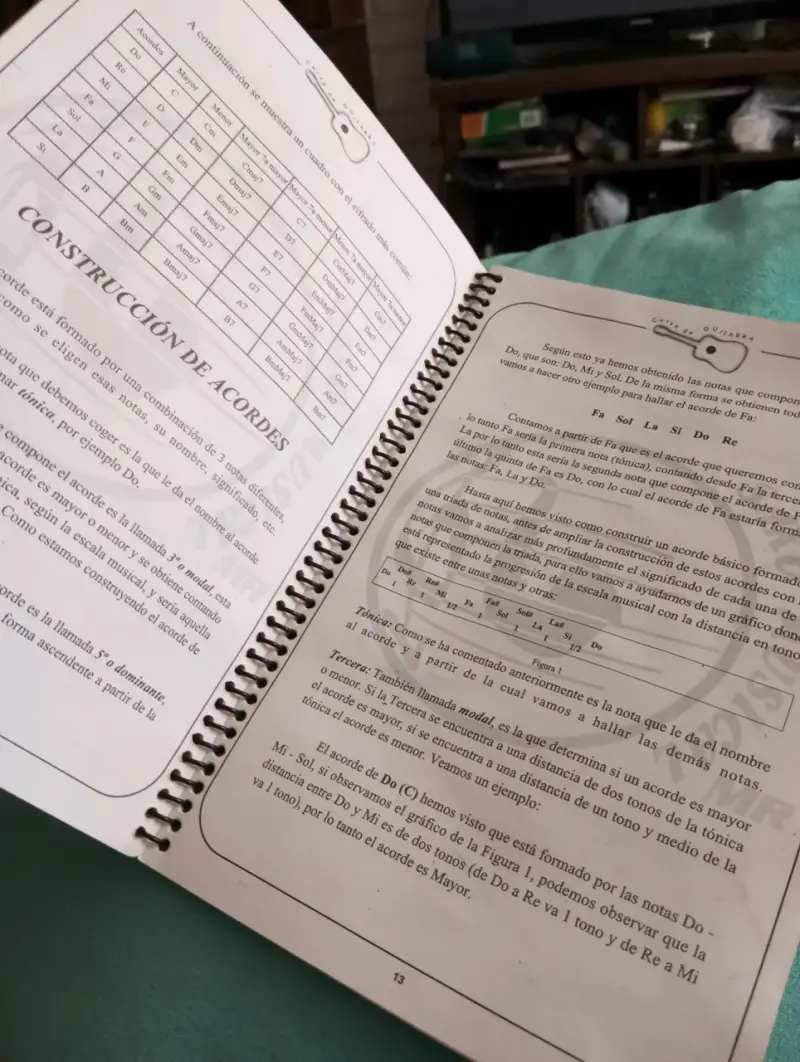 A continuación se muestra un cuadro con el cifrado más común:
Acordes Mayor Menor Mayor 7a mayor Mayor 7a menor Menor 7a mayor Menor 7a menor
Do C Cm Cmaj7 C7 CmMaj7 Cm7
Re D Dm Dmaj7 D7 DmMaj7 Dm7
Mi E Em Emaj7 E7 EmMaj7 Em7
Fa F Fm Fmaj7 F7 FmMaj7 Fm7
Sol G Gm Gmaj7 G7 GmMaj7 Gm7
La A Am Amaj7 A7 AmMaj7 Am7
Si B Bm Bmaj7 B7 BmMaj7 Bm7
CONSTRUCCIÓN DE ACORDES
está formado por una combinación de 3 notas diferentes,
como se eligen esas notas, su nombre, significado, etc.
que debemos coger es la que le da el nombre al acorde
tónica, por ejemplo Do.
compone el acorde es la llamada 3ª o modal, esta
acorde es mayor o menor y se obtiene contando
según la escala musical, y sería aquella
Como estamos construyendo el acorde de
es la llamada 5ª o dominante,
forma ascendente a partir de la
Curso de GUITARRA
Según esto ya hemos obtenido las notas que
Do, que son: Do, Mi y Sol. De la misma forma se obtienen
vamos a hacer otro ejemplo para hallar el acorde de Fa:
Fa Sol La Si Do Re
Contamos a partir de Fa que es el acorde que queremos
lo tanto Fa sería la primera nota (tónica), contando desde Fa la
La por lo tanto esta sería la segunda nota que compone el acorde de
último la quinta de Fa es Do, con lo cual el acorde de Fa estaría
las notas: Fa, La y Do.
Hasta aquí hemos visto como construir un acorde básico
una triada de notas, antes de ampliar la construcción de estos acordes con
notas vamos a analizar más profundamente el significado de cada una de
notas que componen la triada, para ello vamos a ayudarnos de un gráfico
está representado la progresión de la escala musical con la distancia en
que existe entre unas notas y otras:
Do# Re# Fa# Sol# La#
Do Re Mi Fa Sol La Si Do
1 1 1/2 1 1 1 1/2
Figura 1
Tónica: Como se ha comentado anteriormente es la nota que le da el nombre
al acorde y a partir de la cual vamos a hallar las demás notas.
Tercera: También llamada modal, es la que determina si un acorde es mayor
o menor. Si la Tercera se encuentra a una distancia de dos tonos de la tónica
el acorde es mayor, si se encuentra a una distancia de un tono y medio de la
tónica el acorde es menor. Veamos un ejemplo:
El acorde de Do (C) hemos visto que está formado por las notas Do -
Mi - Sol, si observamos el gráfico de la Figura 1, podemos observar que la
distancia entre Do y Mi es de dos tonos (de Do a Re va 1 tono y de Re a Mi
va 1 tono), por lo tanto el acorde es Mayor.
13